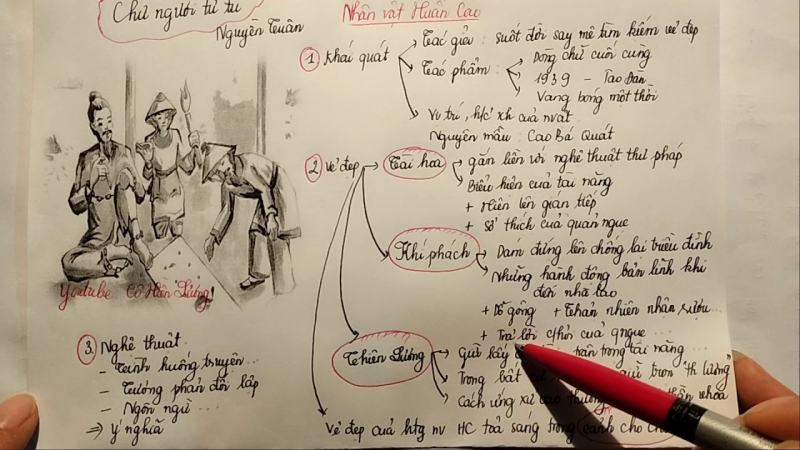 Chữ người tử tù
Nguyễn Tuân
Nhân vật Huấn Cao
1 Khái quát
Tác giả : suốt đời say mê tìm kiếm vẻ đẹp
Tác phẩm :
Dòng chữ cuối cùng
1939 - Tao Đàn
Vang bóng một thời
Vị trí, h/c xh của nvật
Nguyên mẫu : Cao Bá Quát
2 Vẻ đẹp
Tài hoa
gắn liền với nghệ thuật thư pháp
Biểu hiện của tài năng
+ Hiện lên gián tiếp
+ Sở thích của quản ngục
Khí phách
Dám đứng lên chống lại triều đình
Những hành động bản lĩnh khi
đến nhà lao
+ Dỗ gông + Thản nhiên nhận rượu...
+ Trả lời c/hỏi của qngục ...
Thiên lương
Giữ trân trọng tài năng ...
Trong bất trọn "th lương"
Cách ứng xử cao
Vẻ đẹp của htg nv HC toả sáng trong cảnh cho
Youtube Cô Hiền
3. Nghệ thuật
- Tình huống truyện...
- Tương phản đối lập
- Ngôn ngữ ...
⇒ Ý nghĩa